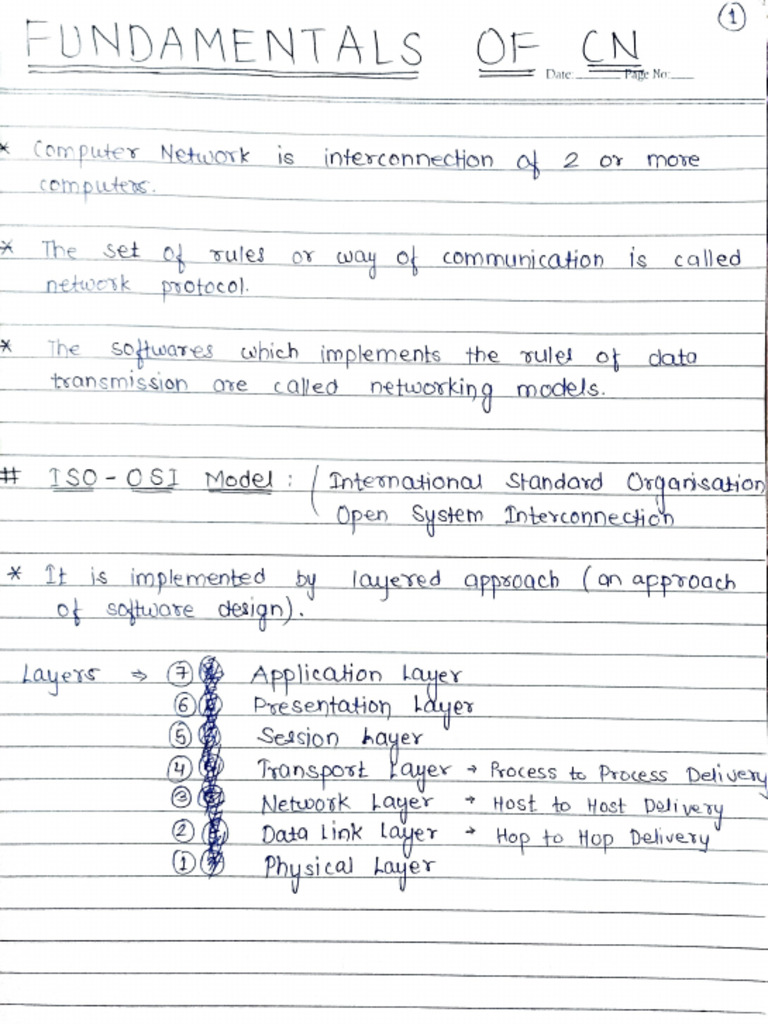 ①
FUNDAMENTALS OF CN
Date: Page No:
* Computer Network is interconnection of 2 or more
computers.
* The set of rules or way of communication is called
network protocol.
* The softwares which implements the rules of data
transmission are called networking models.
# ISO - OSI Model : ( International Standard Organisation
Open System Interconnection
* It is implemented by layered approach (an approach
of software design).
Layers ⇒ ⑦ Application Layer
⑥ Presentation Layer
⑤ Session Layer
④ Transport Layer → Process to Process Delivery
③ Network Layer → Host to Host Delivery
② Data Link Layer → Hop to Hop Delivery
① Physical Layer